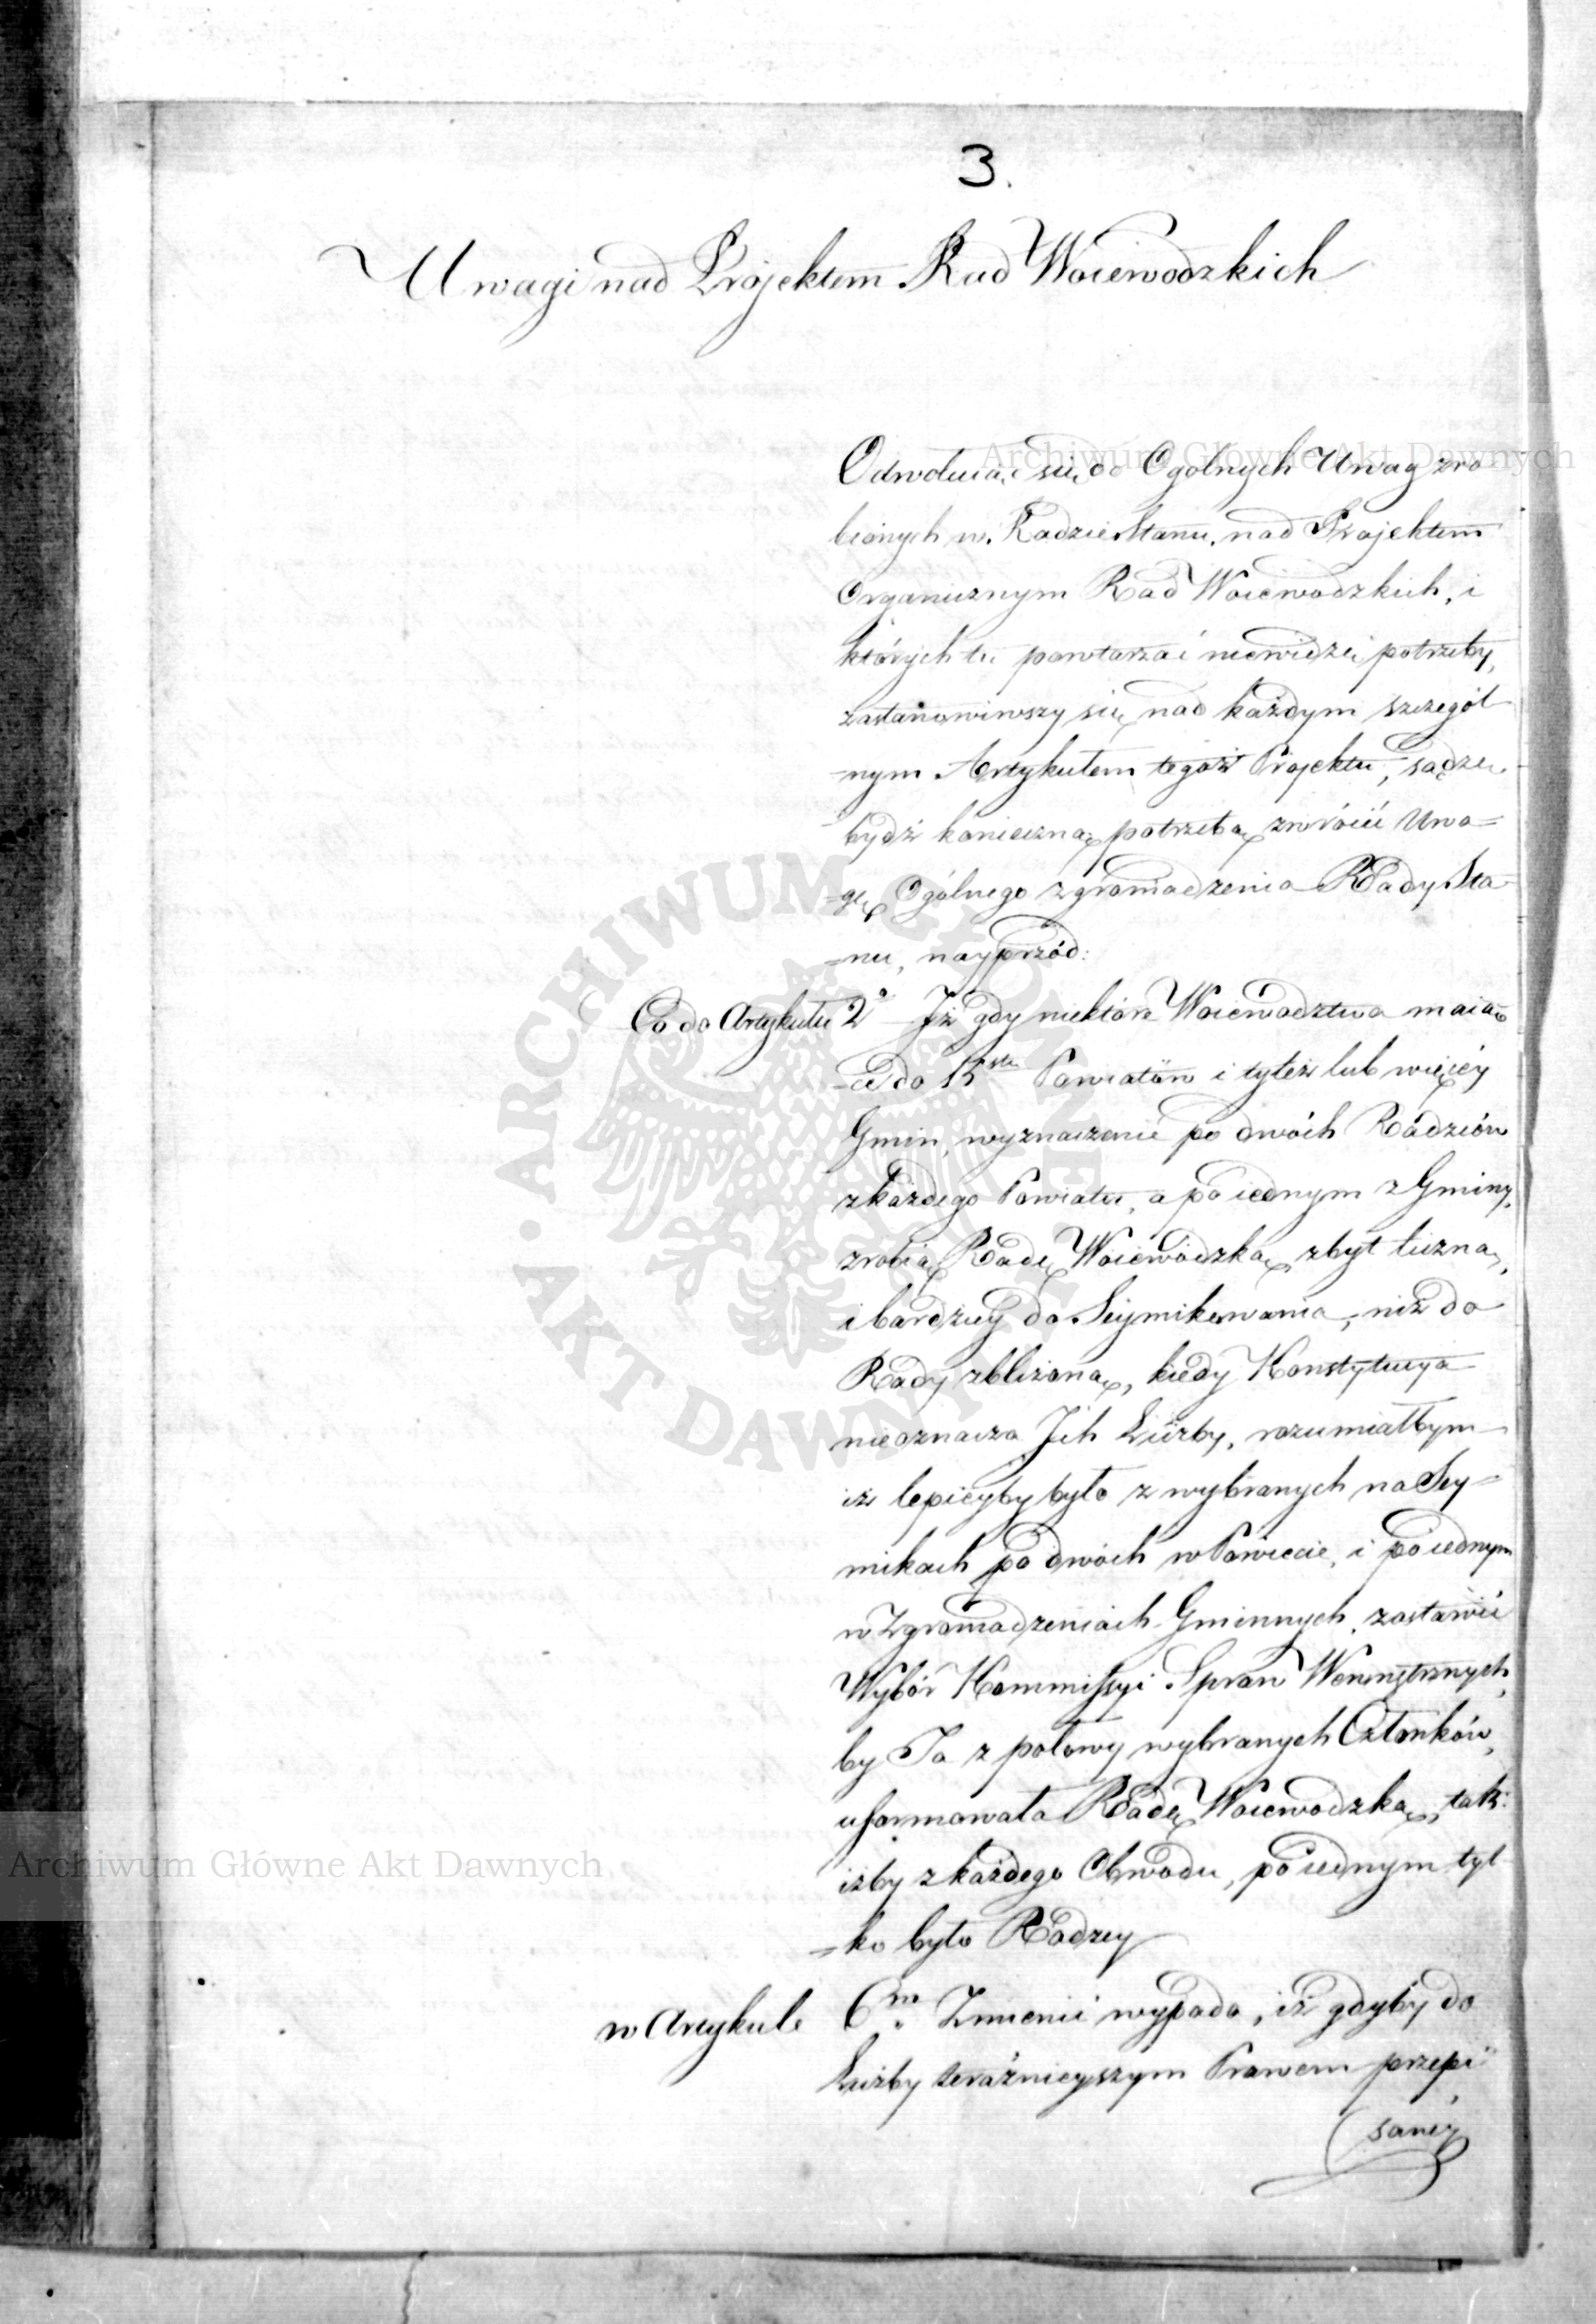 3.
Uwagi nad Projektem Rad Woiewodzkich
Odwołuiąc się do Ogolnych Uwag zro-
bionych w Radzie Stanu, nad Projektem
Organicznym Rad Woiewodzkich, i
których tu powtarzać niewidzę potrzeby,
zastanowiwszy się nad każdym szczegól-
-nym Artykułem tegoż Projektu, sądzę
bydź konieczną potrzebą zwrócić Uwa=
=gę Ogólnego zgromadzenia Rady Sta-
=nu, nayprzód:
Co do Artykułu 2° Iż gdy niektóre Woiewodztwa maią=
=ce do 15stu Powiatów i tyleż lub więcéy
Gmin, wyznaczenie po dwóch Radzców
z każdego Powiatu, a po iednym z Gminy,
zrobią Radę Woiewódzką zbyt liczną,
i bardziey do Seymikowania, niż do
Rady zbliżoną, kiedy Konstytucya
nieoznacza Jch Liczby, rozumiałbym
iż lepieyby było z wybranych na Sey=
mikach po dwóch w Powiecie, i po iednym
w Zgromadzeniach Gminnych, zostawić
Wybór Kommissyi Spraw Wewnętrznych,
by Ta z połowy wybranych Członków,
uformowała Radę Woiewodzką, tak:
iżby z każdego Obwodu, po iednym tyl
=ko było Radzcy
w Artykule 6m Zmienić wypada, iż gdyby do
Liczby teraźnieyszym Prawem przepi
sanéy
Archiwum Główne Akt Dawnych
Archiwum Główne Akt Dawnych
ARCHIWUM GŁÓWNE • AKT DAWNYCH •